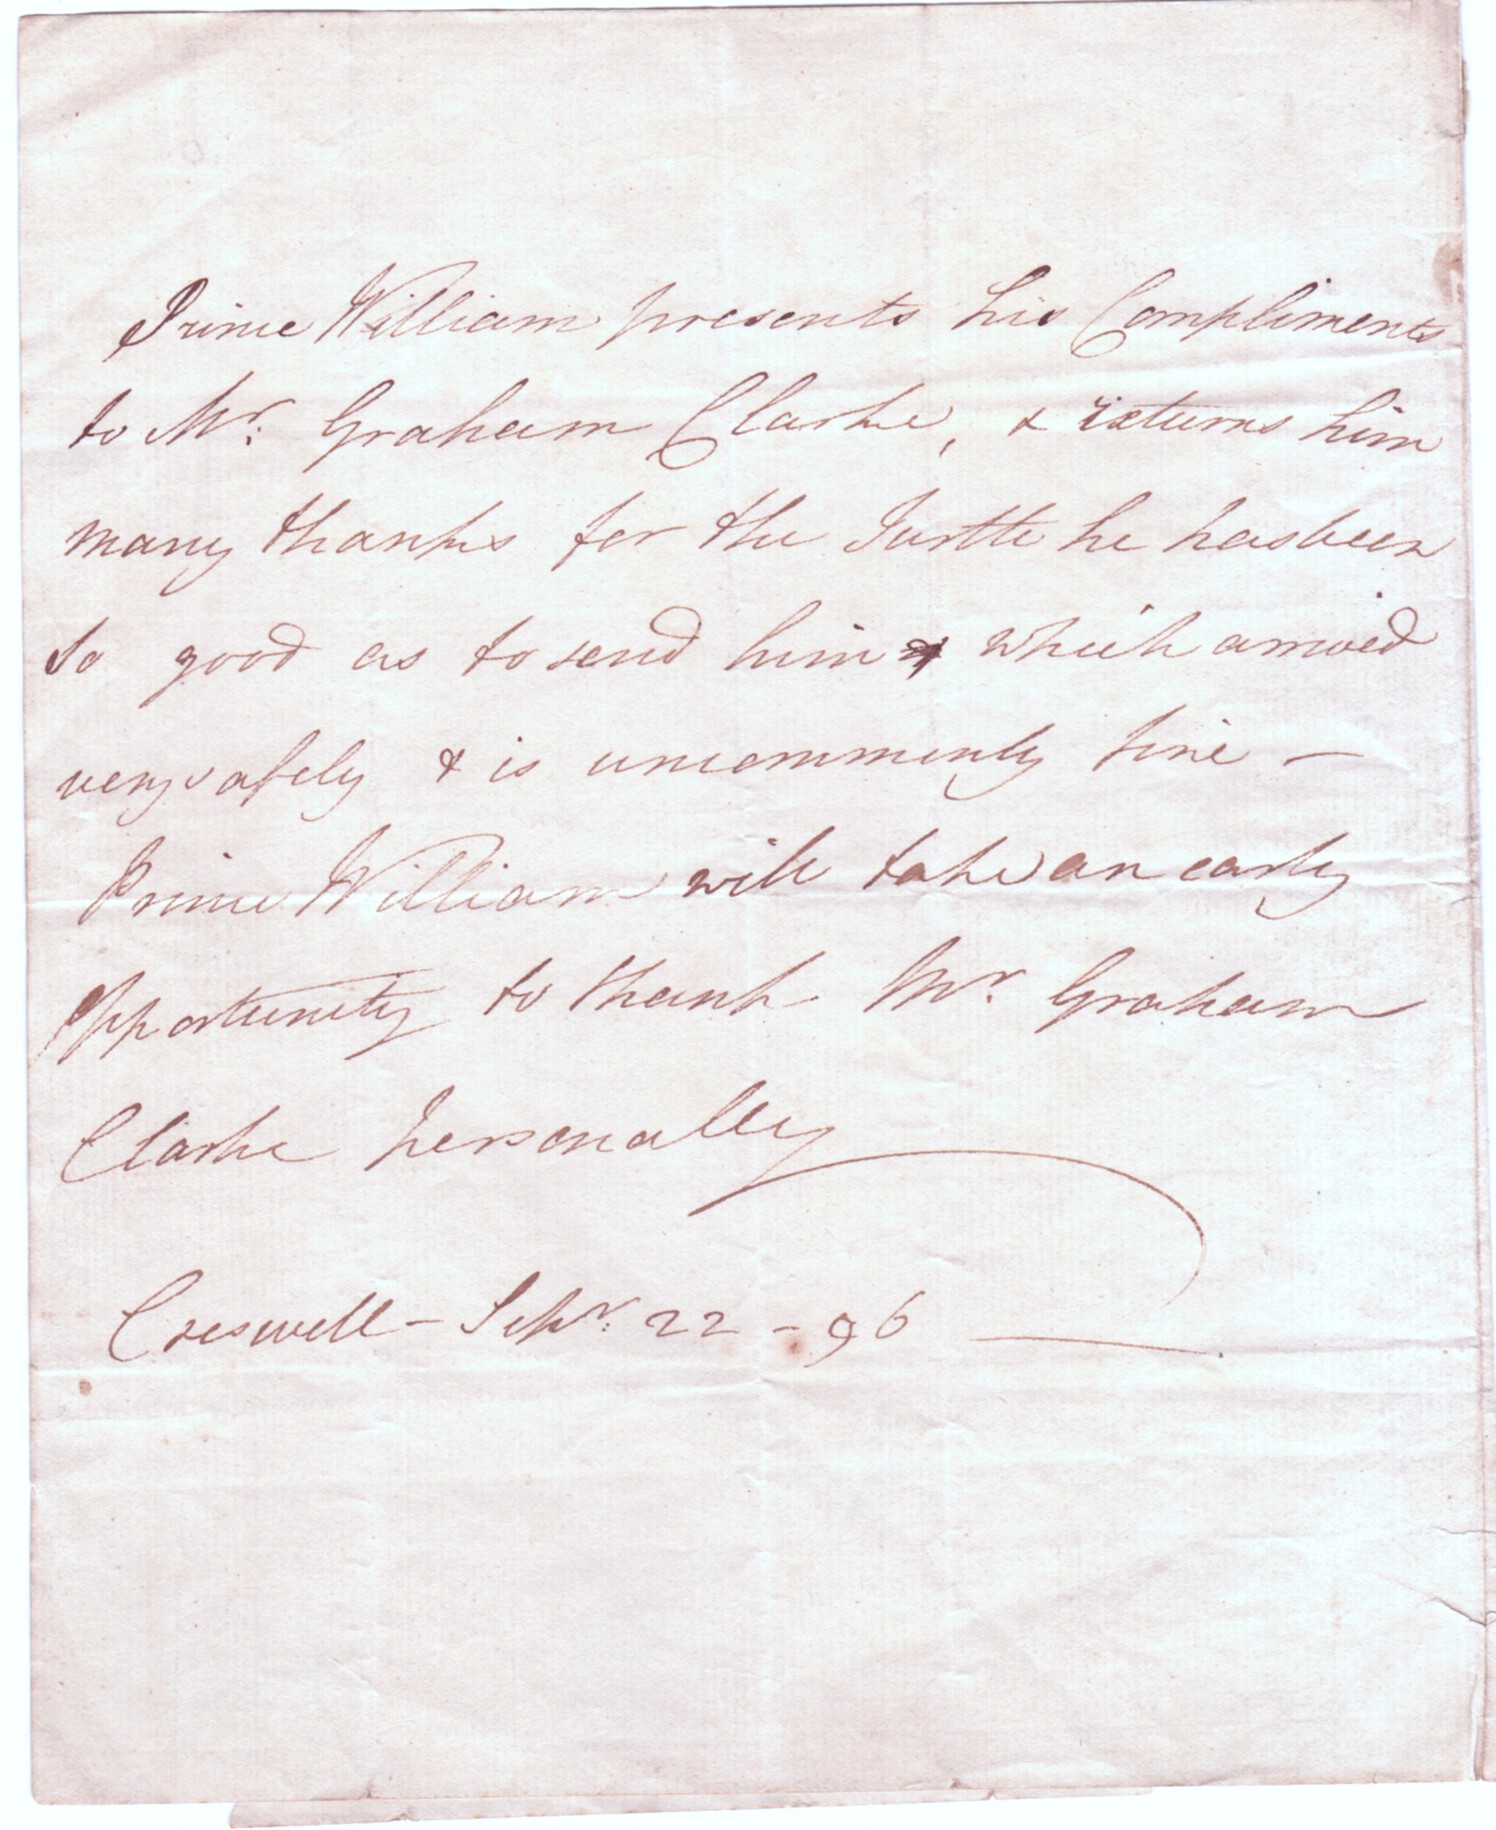 Prince William presents his Compliments
to Mr. Graham Clarke, & returns him
many thanks for the Turtle he has been
so good as to send him & which arrived
very safely & is uncommonly fine —
Prince William will take an early
opportunity to thank Mr. Graham
Clarke personally
Creswell – Sepr. 22 – 96